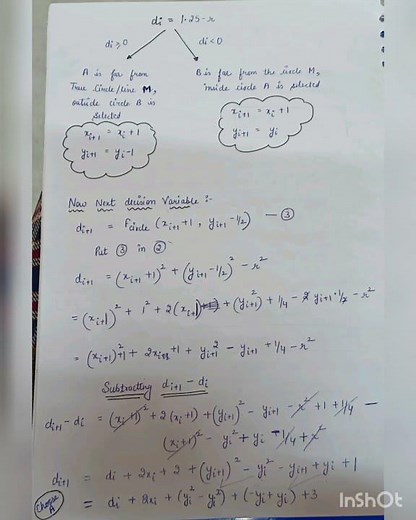 di = 1.25 - r
di ≥ 0
di < 0
A is far from
True Circle/line M,
outside circle B is
selected
B is far from the circle M,
inside circle A is selected
x_{i+1} = x_i + 1
y_{i+1} = y_i - 1
x_{i+1} = x_i + 1
y_{i+1} = y_i
Now Next decision Variable :-
d_{i+1} = F_{circle} (x_{i+1} + 1 , y_{i+1} - 1/2) — ③
Put ③ in ②
d_{i+1} = (x_{i+1} + 1)² + (y_{i+1} - 1/2)² - r²
= (x_{i+1})² + 1² + 2(x_{i+1}) + (y_{i+1}²) + 1/4 - 2 y_{i+1} · 1/2 - r²
= (x_{i+1})² + 1 + 2x_{i+1} + 1 + y_{i+1}² - y_{i+1} + 1/4 - r²
Subtracting d_{i+1} - di
d_{i+1} - di = (x_i + 1)² + 2(x_i + 1) + (y_{i+1})² - y_{i+1} - r² + 1 + 1/4 -
(x_i + 1)² - y_i² + y_i - 1/4 + r²
d_{i+1} = di + 2x_i + 2 + (y_{i+1})² - y_i² - y_{i+1} + y_i + 1
Choose A
= di + 2x_i + (y_i² - y_i²) + (-y_i + y_i) + 3
InShOt